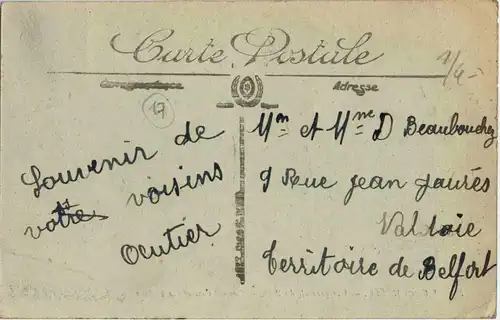 Carte Postale
Correspondance
Adresse
17
Souvenir de
votre voisins
Mm et Mme D Beaubouchez
9 Rue jean jaurés
Valdoie
Territoire de Belfort